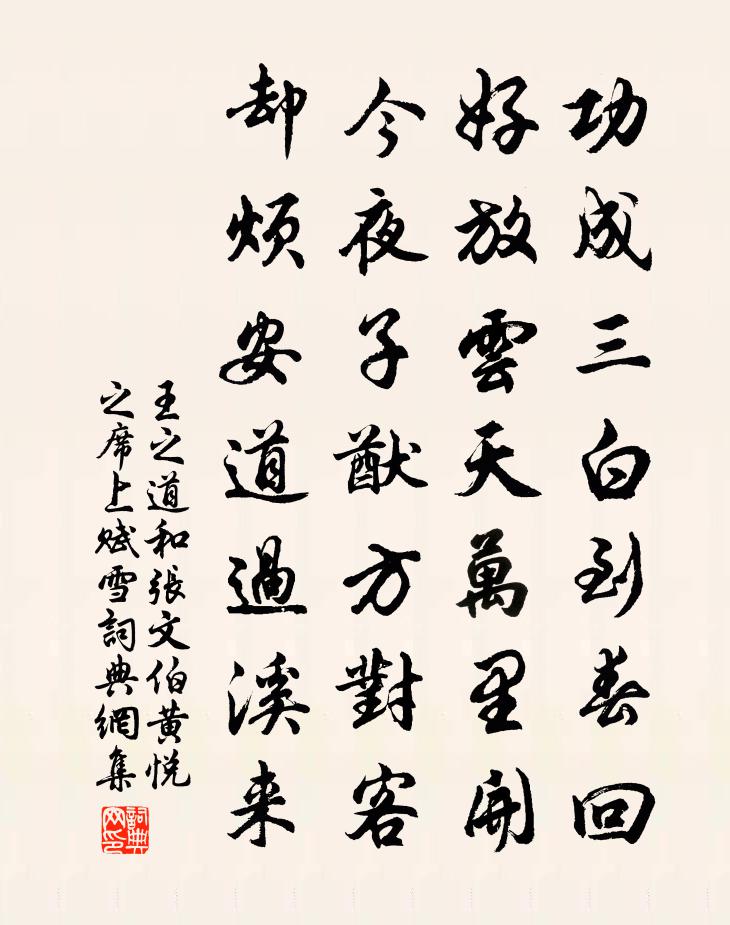 功成三白到春回
好放雲天萬里開
今夜子猷方對客
却煩安道過溪来
王之道和張文伯黄悦
之席上賦雪詞典網集
詞典網印